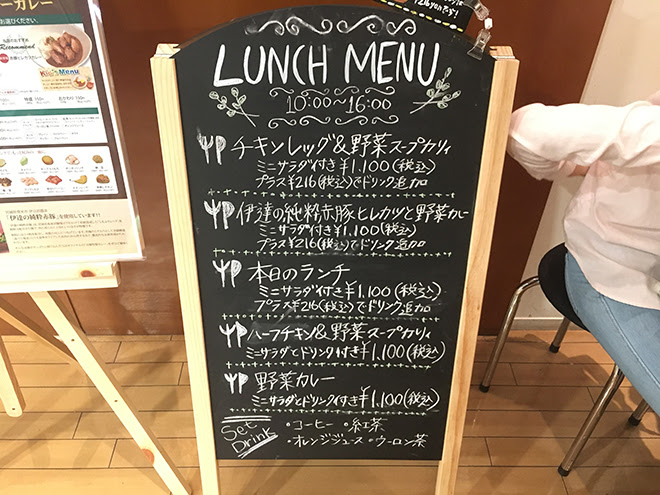 216yenです!
ーカレー
お選びください。
Recommend
Big's Menu
「伊達の純粋赤豚」を使用しています!!
LUNCH MENU
10:00~16:00
チキンレッグ&野菜スープカリィ
ミニサラダ付き¥1,100(税込)
プラス¥216(税込)でドリンク追加
伊達の純粋赤豚ヒレカツと野菜カレー
ミニサラダ付き¥1,100(税込)
プラス¥216(税込)でドリンク追加
本日のランチ
ミニサラダ付き¥1,100(税込)
プラス¥216(税込)でドリンク追加
ハーフチキン&野菜スープカリィ
ミニサラダとドリンク付き¥1,100(税込)
野菜カレー
ミニサラダとドリンク付き¥1,100(税込)
Set Drink
・コーヒー ・紅茶
・オレンジジュース ・ウーロン茶